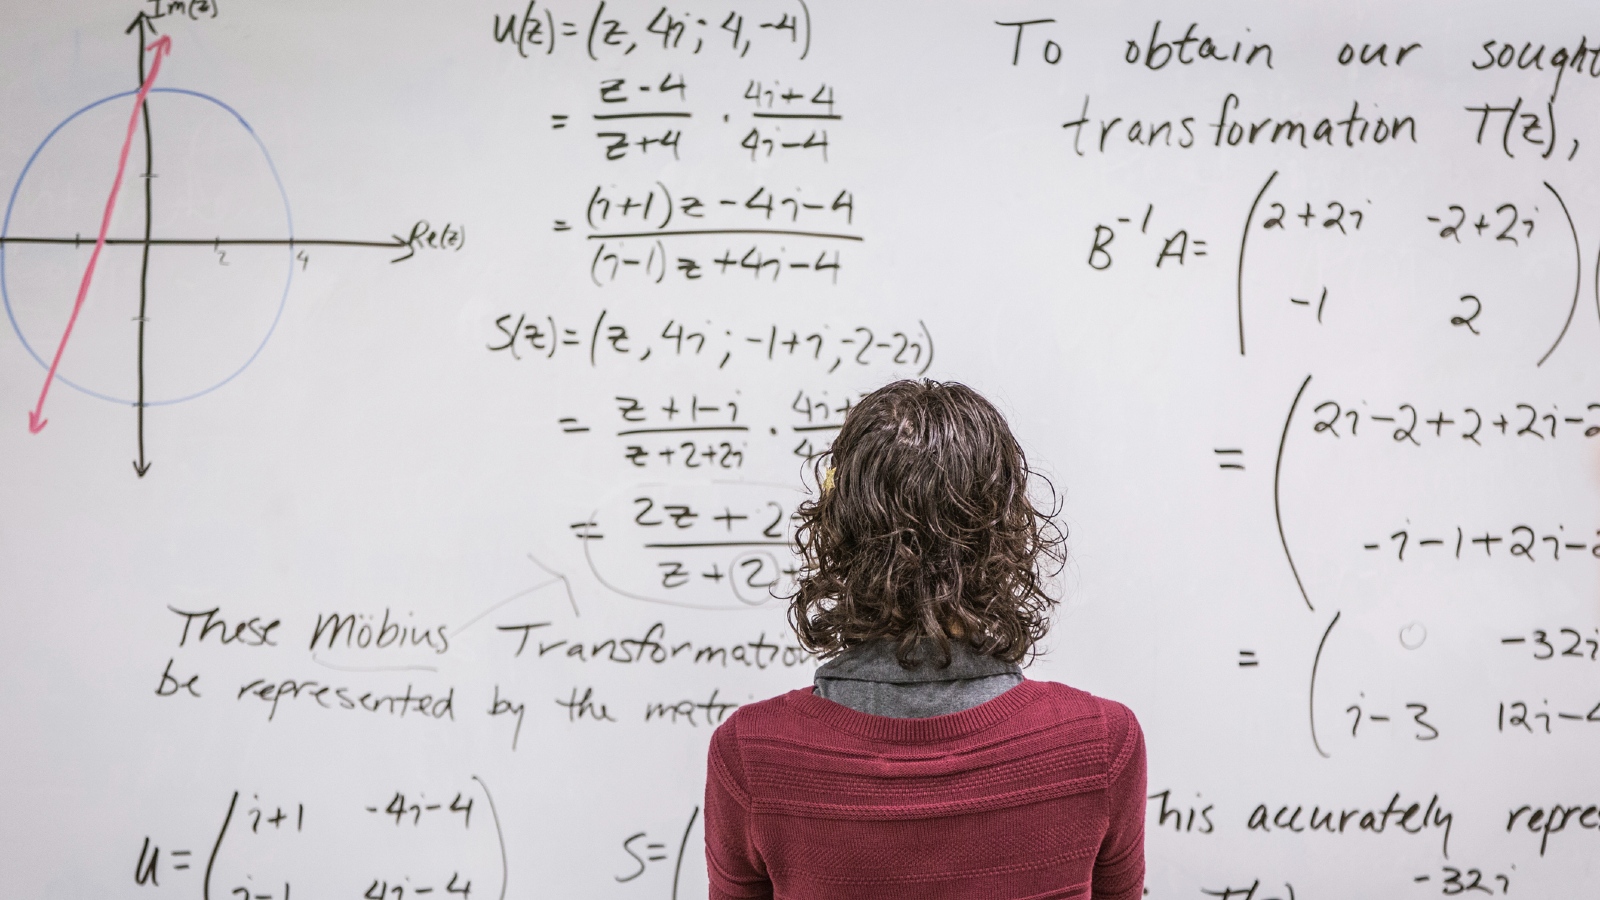 Im(z)
Re(z)
2
4
U(z)=(z, 4i; 4, -4)
= z-4/z+4 · 4i+4/4i-4
= (i+1)z-4i-4/(i-1)z+4i-4
S(z)=(z, 4i; -1+i, -2-2i)
= z+1-i/z+2+2i ·
= 2z+2/z+2+
These Möbius Transformation
be represented by the
U= (i+1 -4i-4
i-1 4i-4)
S= (
To obtain our sought
transformation T(z),
B⁻¹A= (2+2i -2+2i
-1 2)
= (2i-2+2+2i-2
-i-1+2i-2
= (0 -32i
i-3 12i-4
his accurately repre
-32i